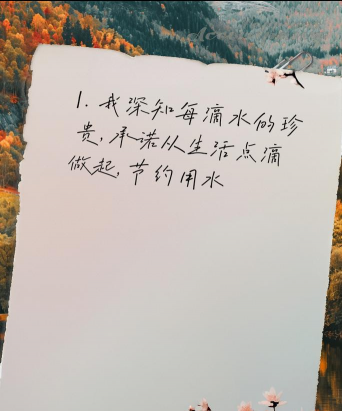 1. 我深知每滴水的珍
贵，承诺从生活点滴
做起，节约用水